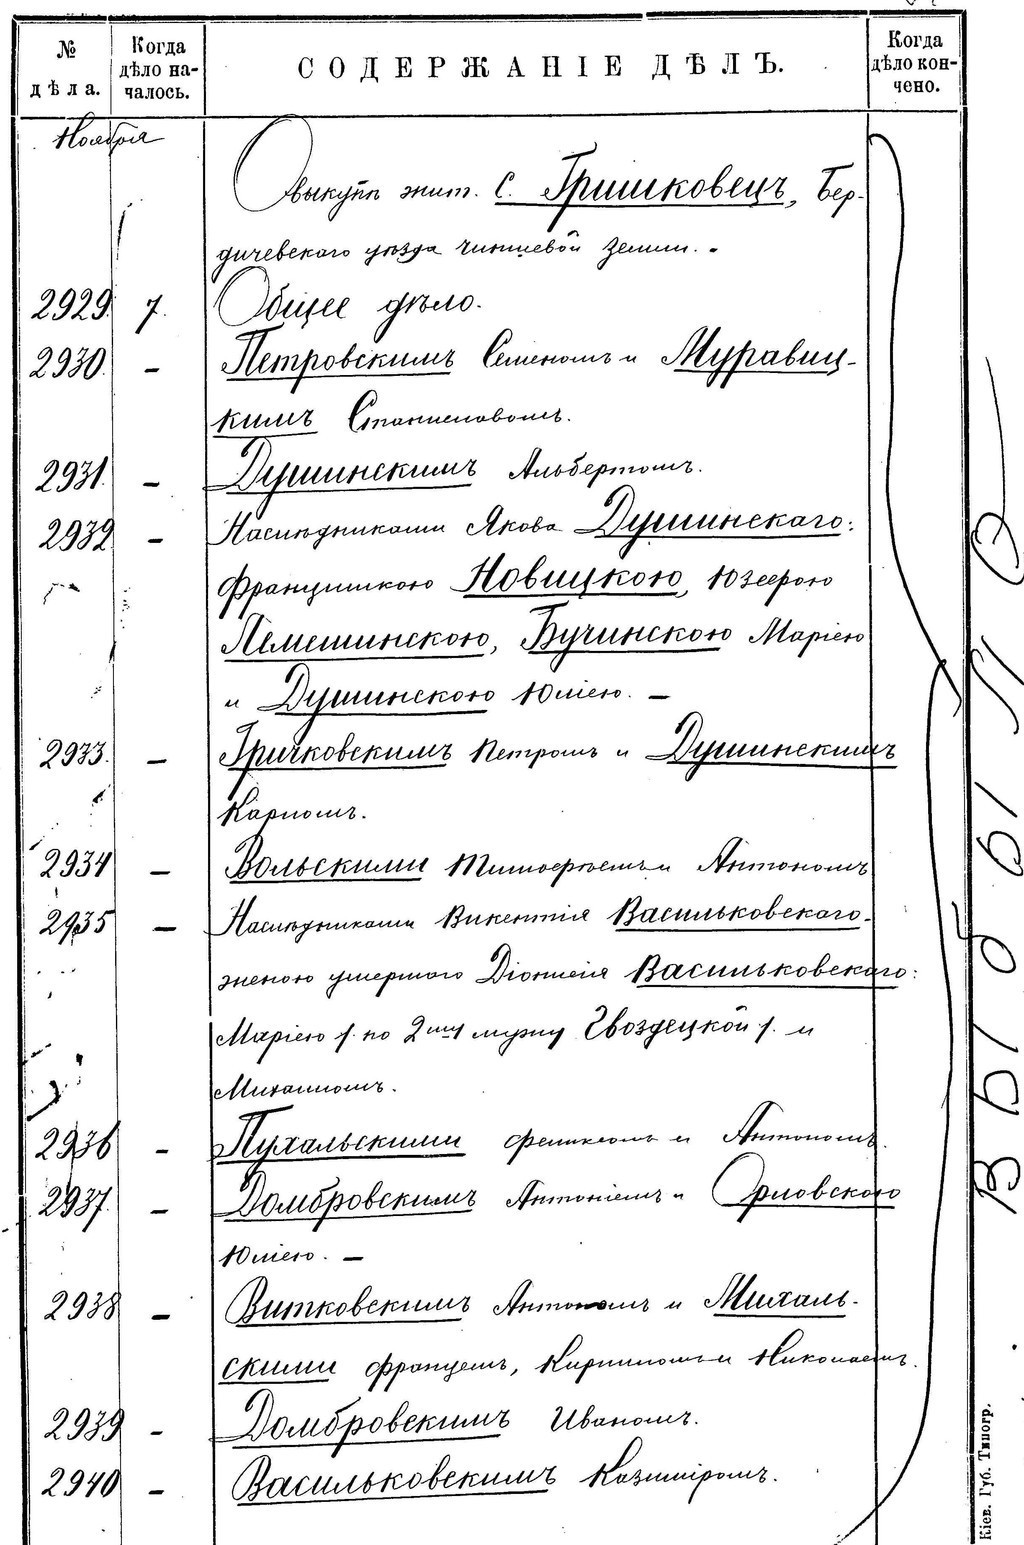 № дѣла.
Когда дѣло началось.
СОДЕРЖАНІЕ ДѢЛЪ.
Когда дѣло кончено.
Ноября
О выкупѣ жит. с. Гришковецъ, Бер-
дичевскаго уѣзда чиншевой земли. -
2929. 7. Общее дѣло.
2930. – Петровскимъ Семеномъ и Муравиц-
кимъ Станиславомъ.
2931. – Душинскимъ Альбертомъ.
2932. – Наслѣдниками Якова Душинскаго:
Францишкою Новицкою, Юзефою
Лемешинскою, Бучинскою Маріею
и Душинскою Юліею. –
2933. – Гричковскимъ Петромъ и Душинскимъ
Карпомъ.
2934 – Вольскими Тимофѣемъ и Антономъ
2935 – Наслѣдниками Викентія Васильковскаго-
женою умершаго Діонисія Васильковскаго:
Маріею /. по 2му мужу Гвоздецкой /. и
Михаиломъ.
2936 – Пухальскими Феликсомъ и Антономъ.
2937. – Домбровскимъ Антоніемъ и Орловскою
Юліею. –
2938 – Витковскимъ Антономъ и Михаль-
скими Францемъ, Кирилломъ и Николаемъ.
2939 – Домбровскимъ Иваномъ.
2940 – Васильковскимъ Казиміромъ.
ВЫБЫЛО
Кіев. Губ. Типогр.